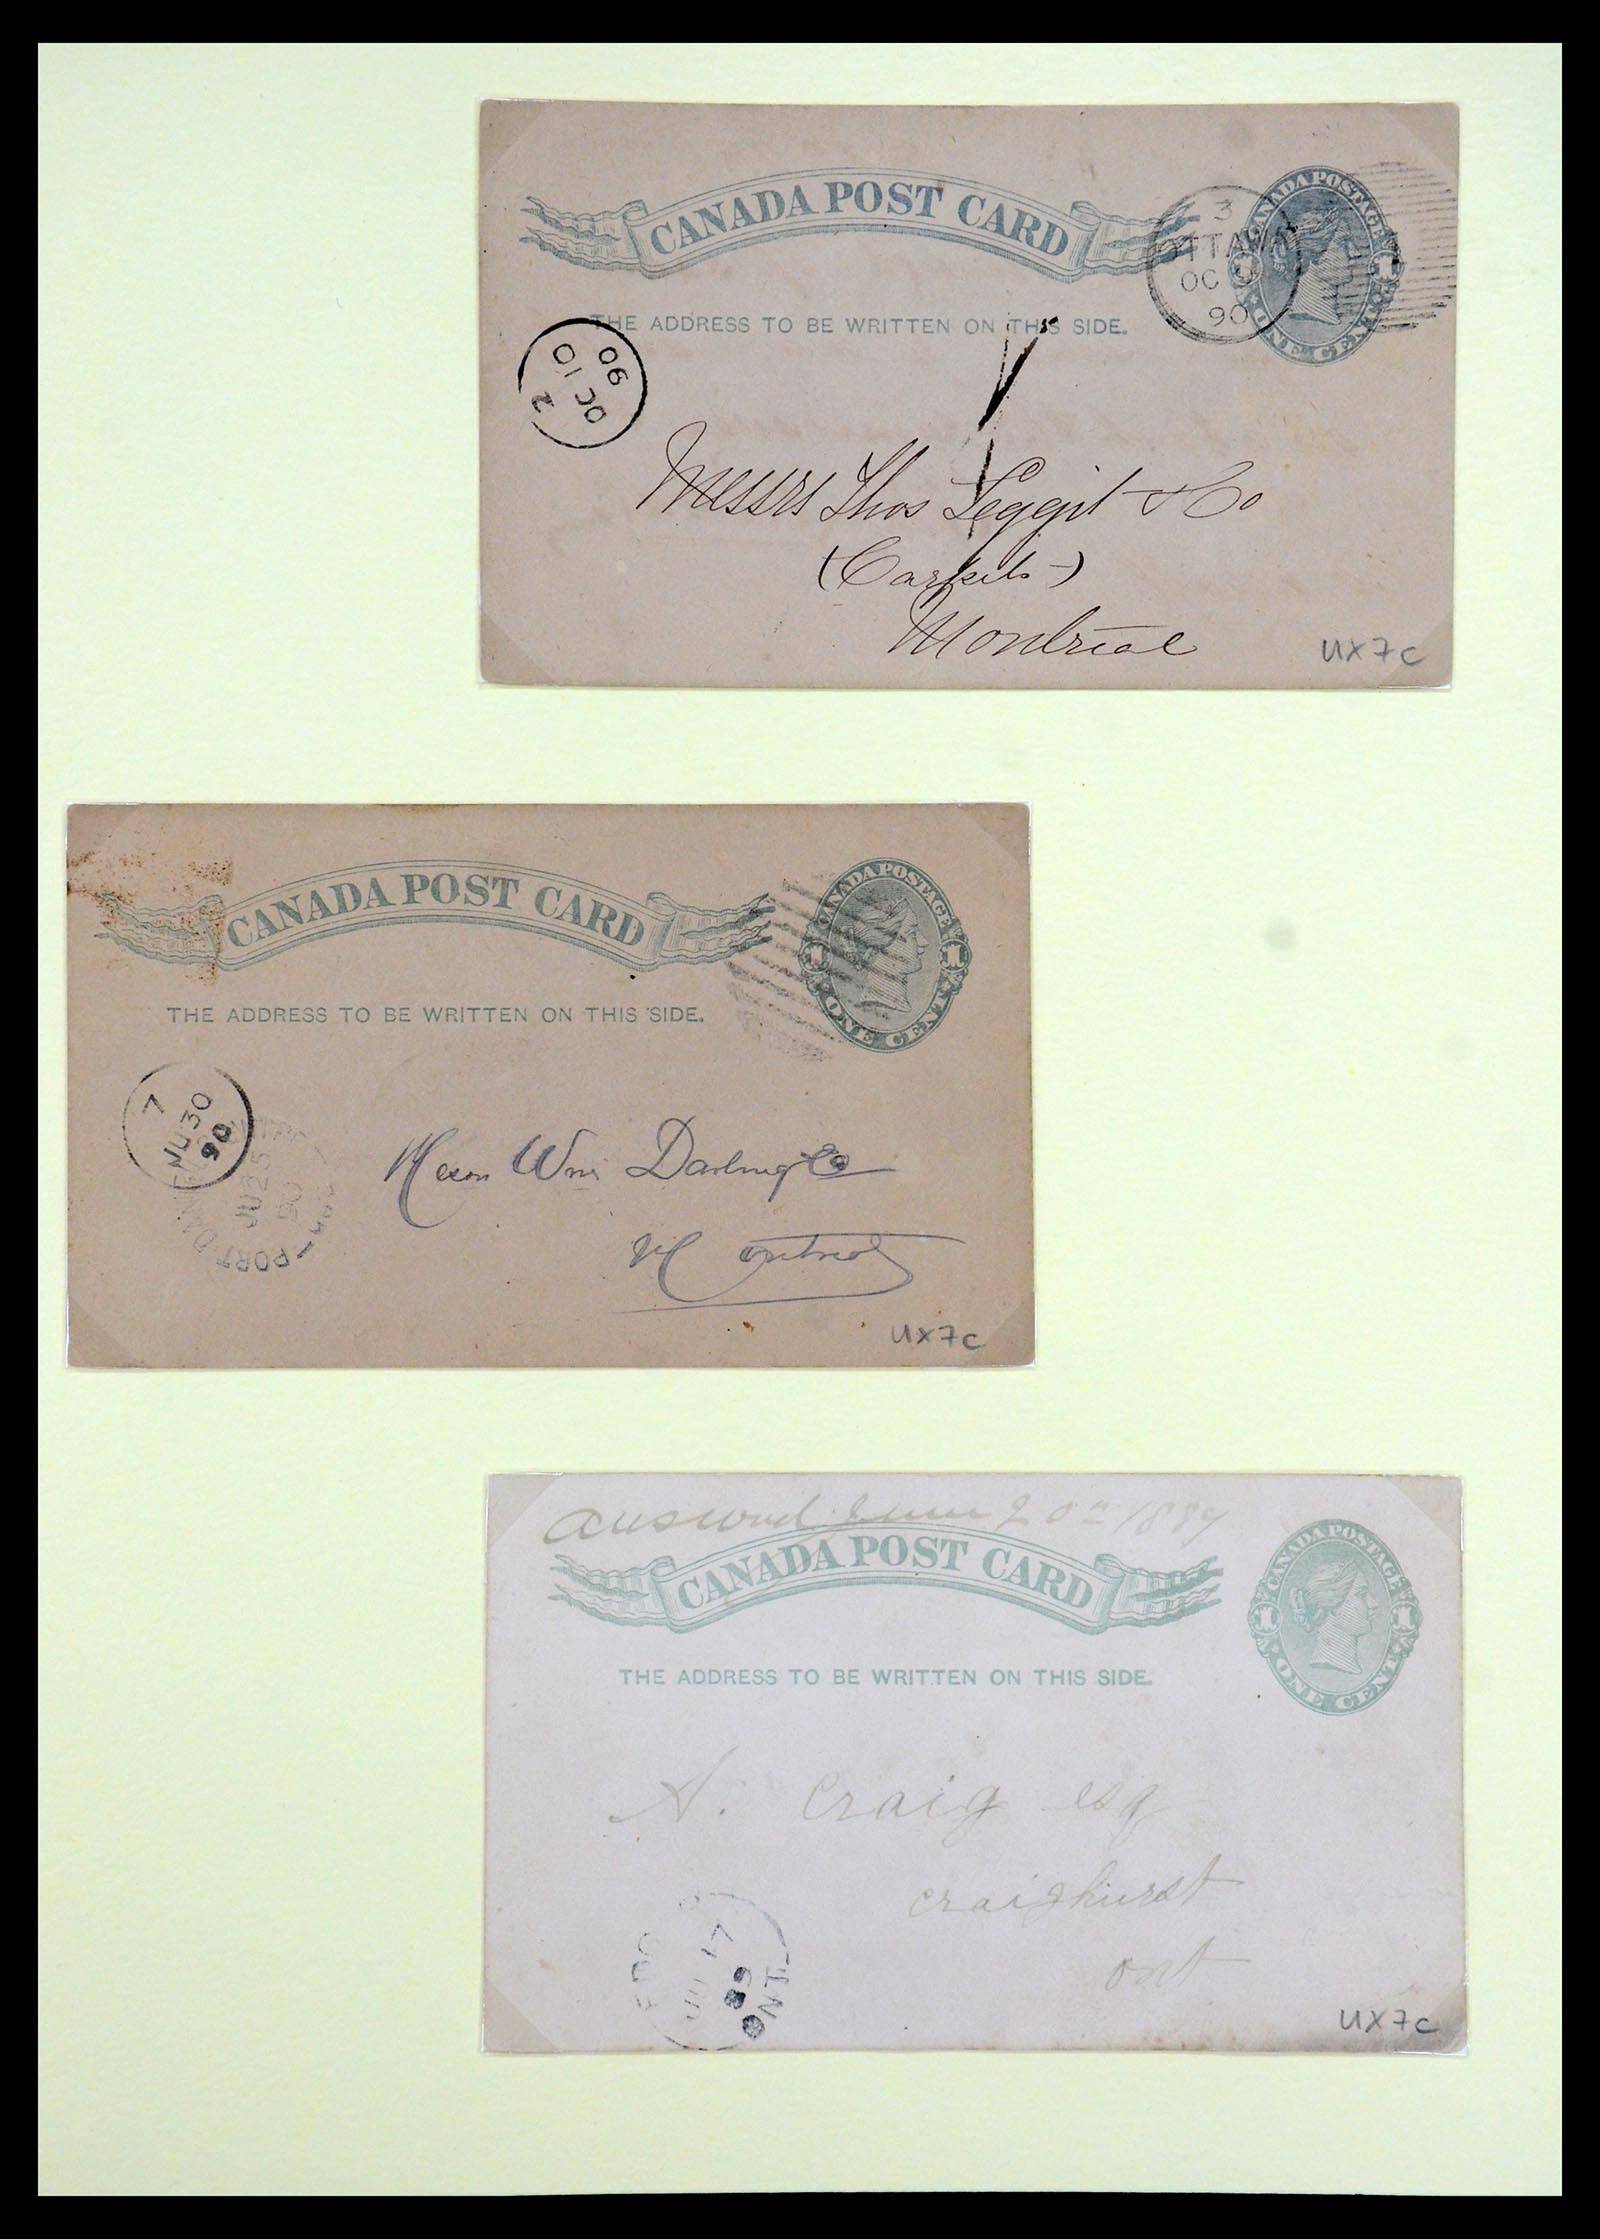 CANADA POST CARD
CANADA POSTAGE
1 1
ONE CENT
3
OTTAWA
OC
90
THE ADDRESS TO BE WRITTEN ON THIS SIDE.
2
OC 10
90
1
Messrs Thos Leggit & Co
(Carpets)
Montreal
UX7C
CANADA POST CARD
CANADA POSTAGE
1 1
ONE CENT
THE ADDRESS TO BE WRITTEN ON THIS SIDE.
7
JU 30
90
PORT
JU 25
90
Wm Darling & Co
Montreal
UX7C
June 20th 1889
CANADA POST CARD
CANADA POSTAGE
1 1
ONE CENT
THE ADDRESS TO BE WRITTEN ON THIS SIDE.
A. Craig esq
craighurst
ont
JU 17
89
ONT.
UX7C